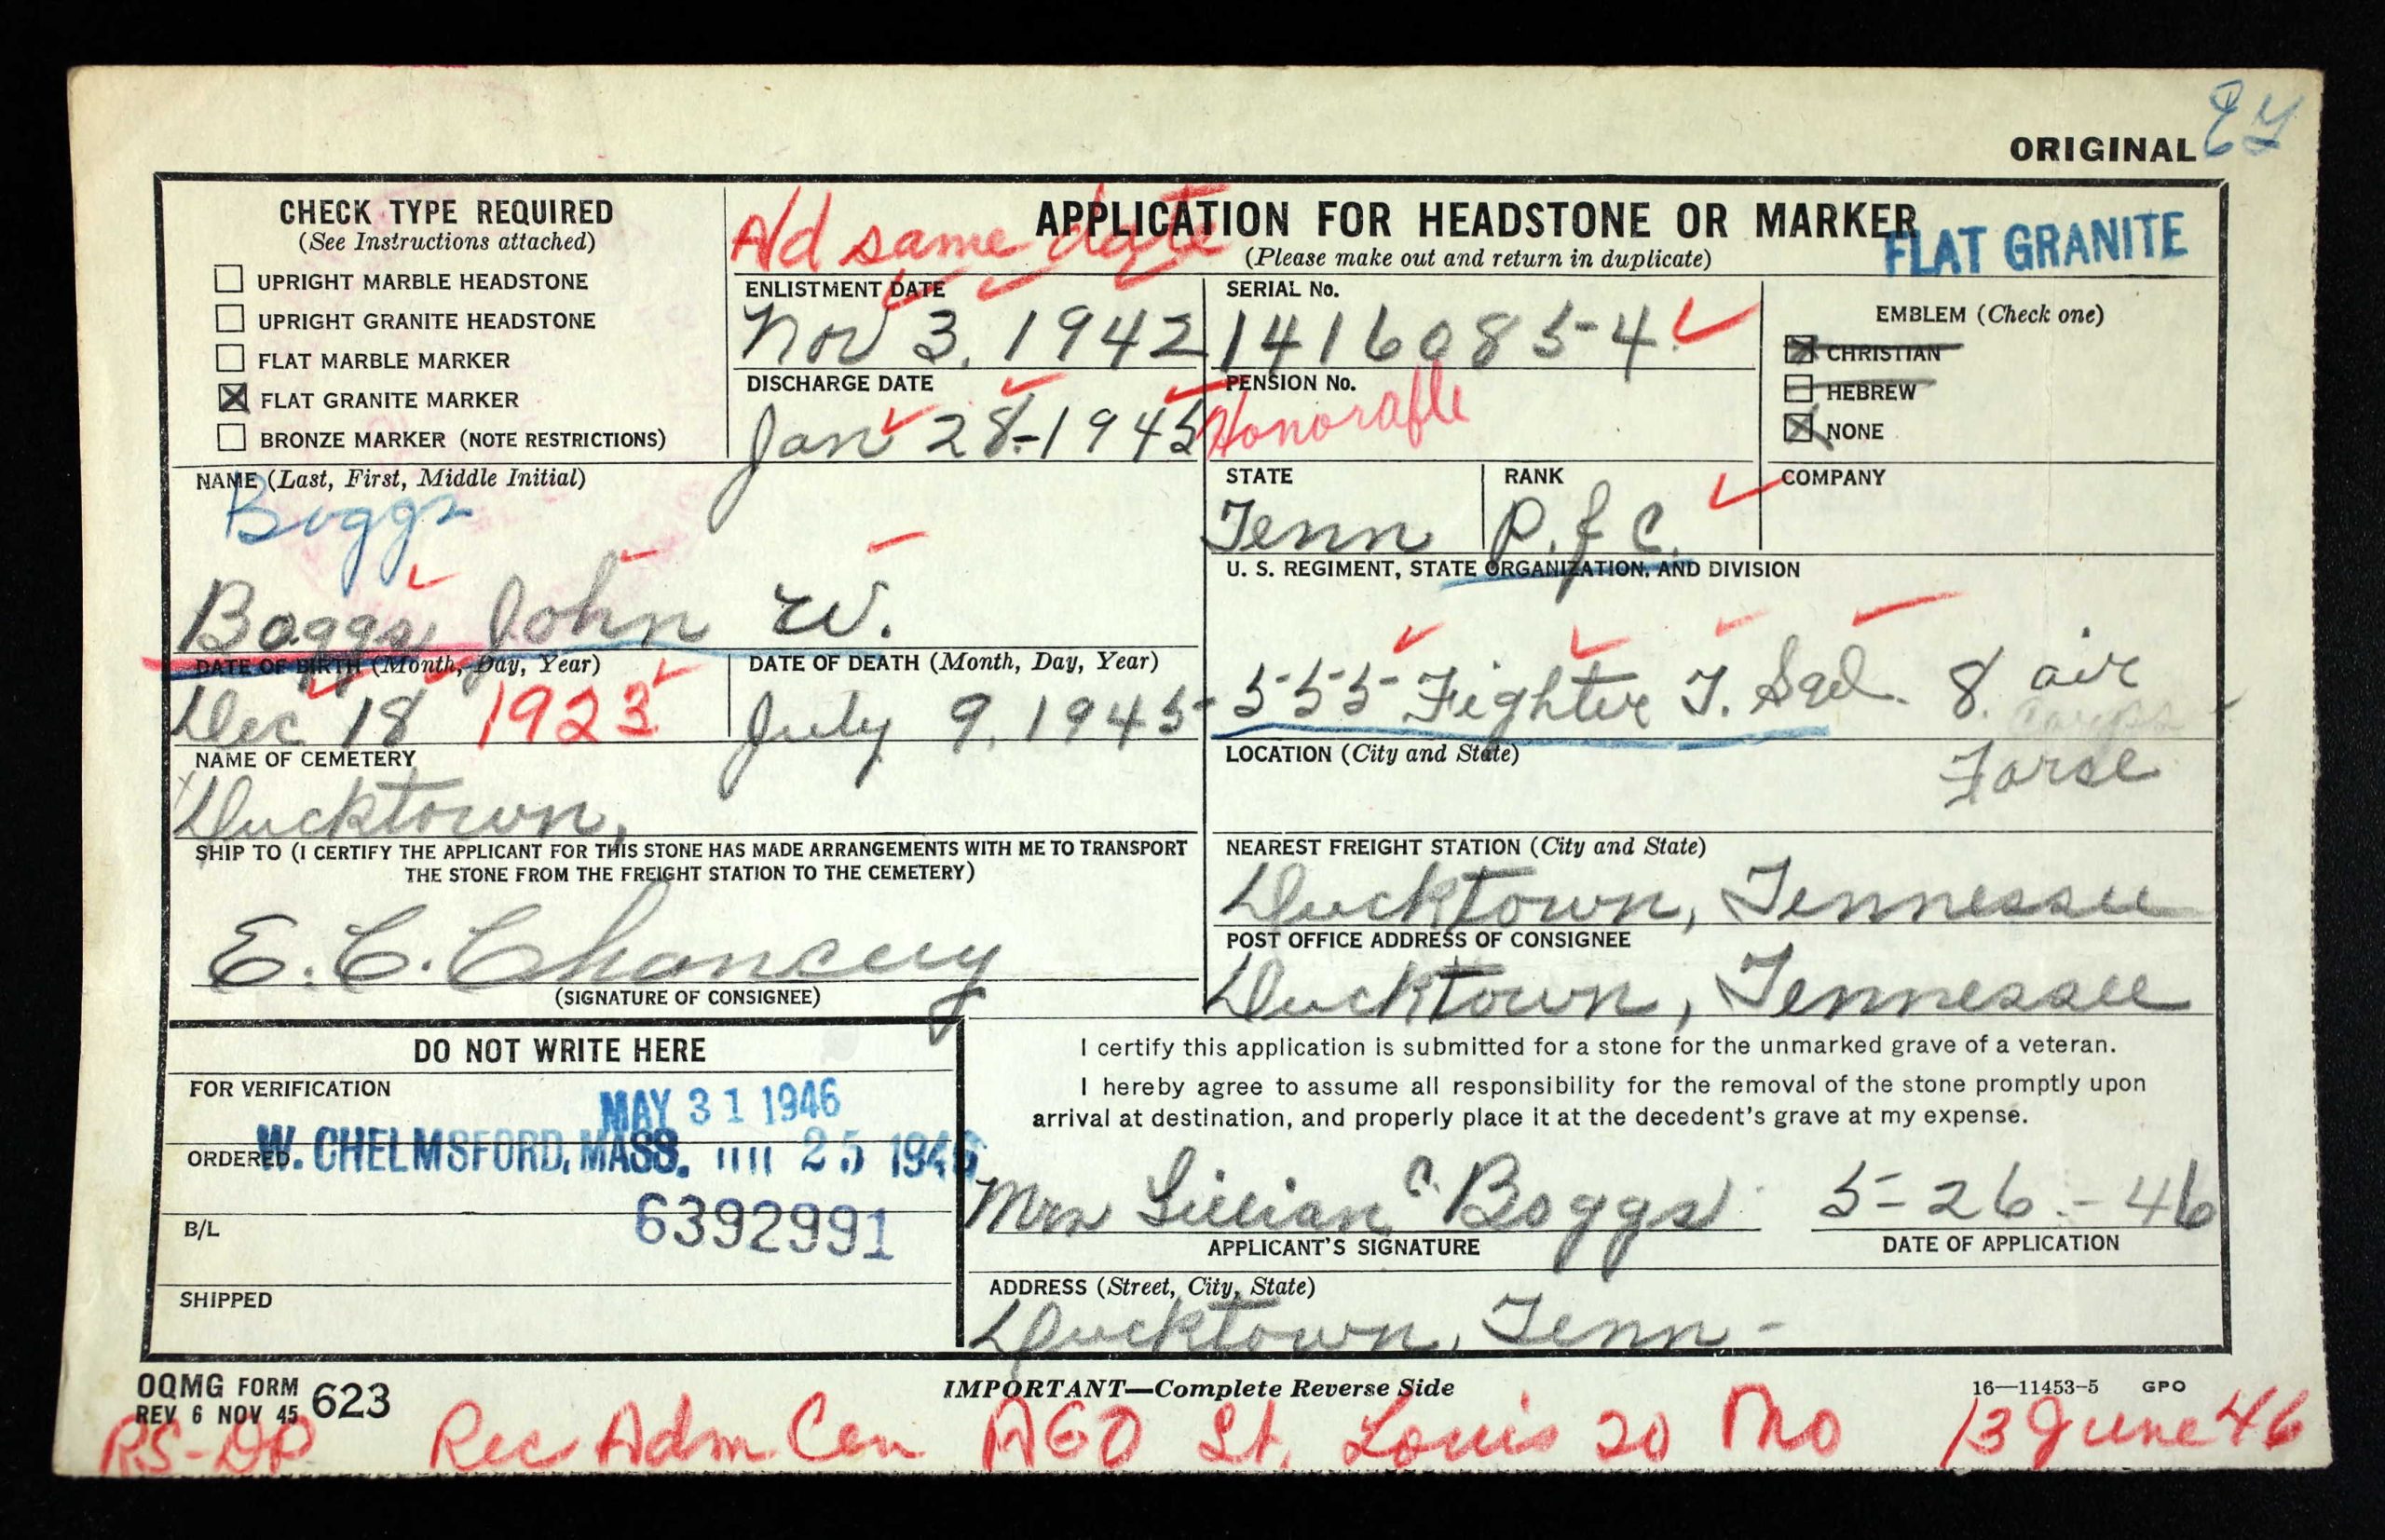 EY
ORIGINAL
CHECK TYPE REQUIRED
(See Instructions attached)
UPRIGHT MARBLE HEADSTONE
UPRIGHT GRANITE HEADSTONE
FLAT MARBLE MARKER
FLAT GRANITE MARKER
BRONZE MARKER (NOTE RESTRICTIONS)
A/d same date
APPLICATION FOR HEADSTONE OR MARKER
(Please make out and return in duplicate)
FLAT GRANITE
ENLISTMENT DATE
Nov 3, 1942
SERIAL No.
14160854
DISCHARGE DATE
Jan 28-1945
PENSION No.
Honorable
EMBLEM (Check one)
CHRISTIAN
HEBREW
NONE
NAME (Last, First, Middle Initial)
Boggs
Boggs John W.
STATE
Tenn
RANK
P.f.C.
COMPANY
U. S. REGIMENT, STATE ORGANIZATION, AND DIVISION
555 Fighter T. Sqd. 8. air
Forse
DATE OF BIRTH (Month, Day, Year)
Dec 18 1923
DATE OF DEATH (Month, Day, Year)
July 9, 1945
NAME OF CEMETERY
Ducktown,
LOCATION (City and State)
SHIP TO (I CERTIFY THE APPLICANT FOR THIS STONE HAS MADE ARRANGEMENTS WITH ME TO TRANSPORT
THE STONE FROM THE FREIGHT STATION TO THE CEMETERY)
E. C. Chancey
(SIGNATURE OF CONSIGNEE)
NEAREST FREIGHT STATION (City and State)
Ducktown, Tennessee
POST OFFICE ADDRESS OF CONSIGNEE
Ducktown, Tennessee
DO NOT WRITE HERE
FOR VERIFICATION
MAY 31 1946
ORDERED
W. CHELMSFORD, MASS. 25 1946
6392991
B/L
SHIPPED
I certify this application is submitted for a stone for the unmarked grave of a veteran.
I hereby agree to assume all responsibility for the removal of the stone promptly upon
arrival at destination, and properly place it at the decedent's grave at my expense.
Mrs Lillian C. Boggs 5-26-46
APPLICANT'S SIGNATURE
DATE OF APPLICATION
ADDRESS (Street, City, State)
Ducktown, Tenn-
OQMG FORM 623
REV 6 NOV 45
IMPORTANT—Complete Reverse Side
16—11453-5 GPO
RS-DP Rec Adm Cen AGO St. Louis 20 Mo 13 June 46